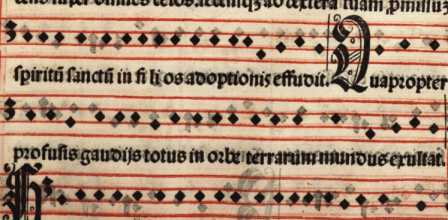 celos. sedensq3 ad dextera tuam. p̄missū3
spiritū sanctū in fi li os adoptionis effudit. Quapropter
profusis gaudijs totus in orbe terrarum mundus exultat.